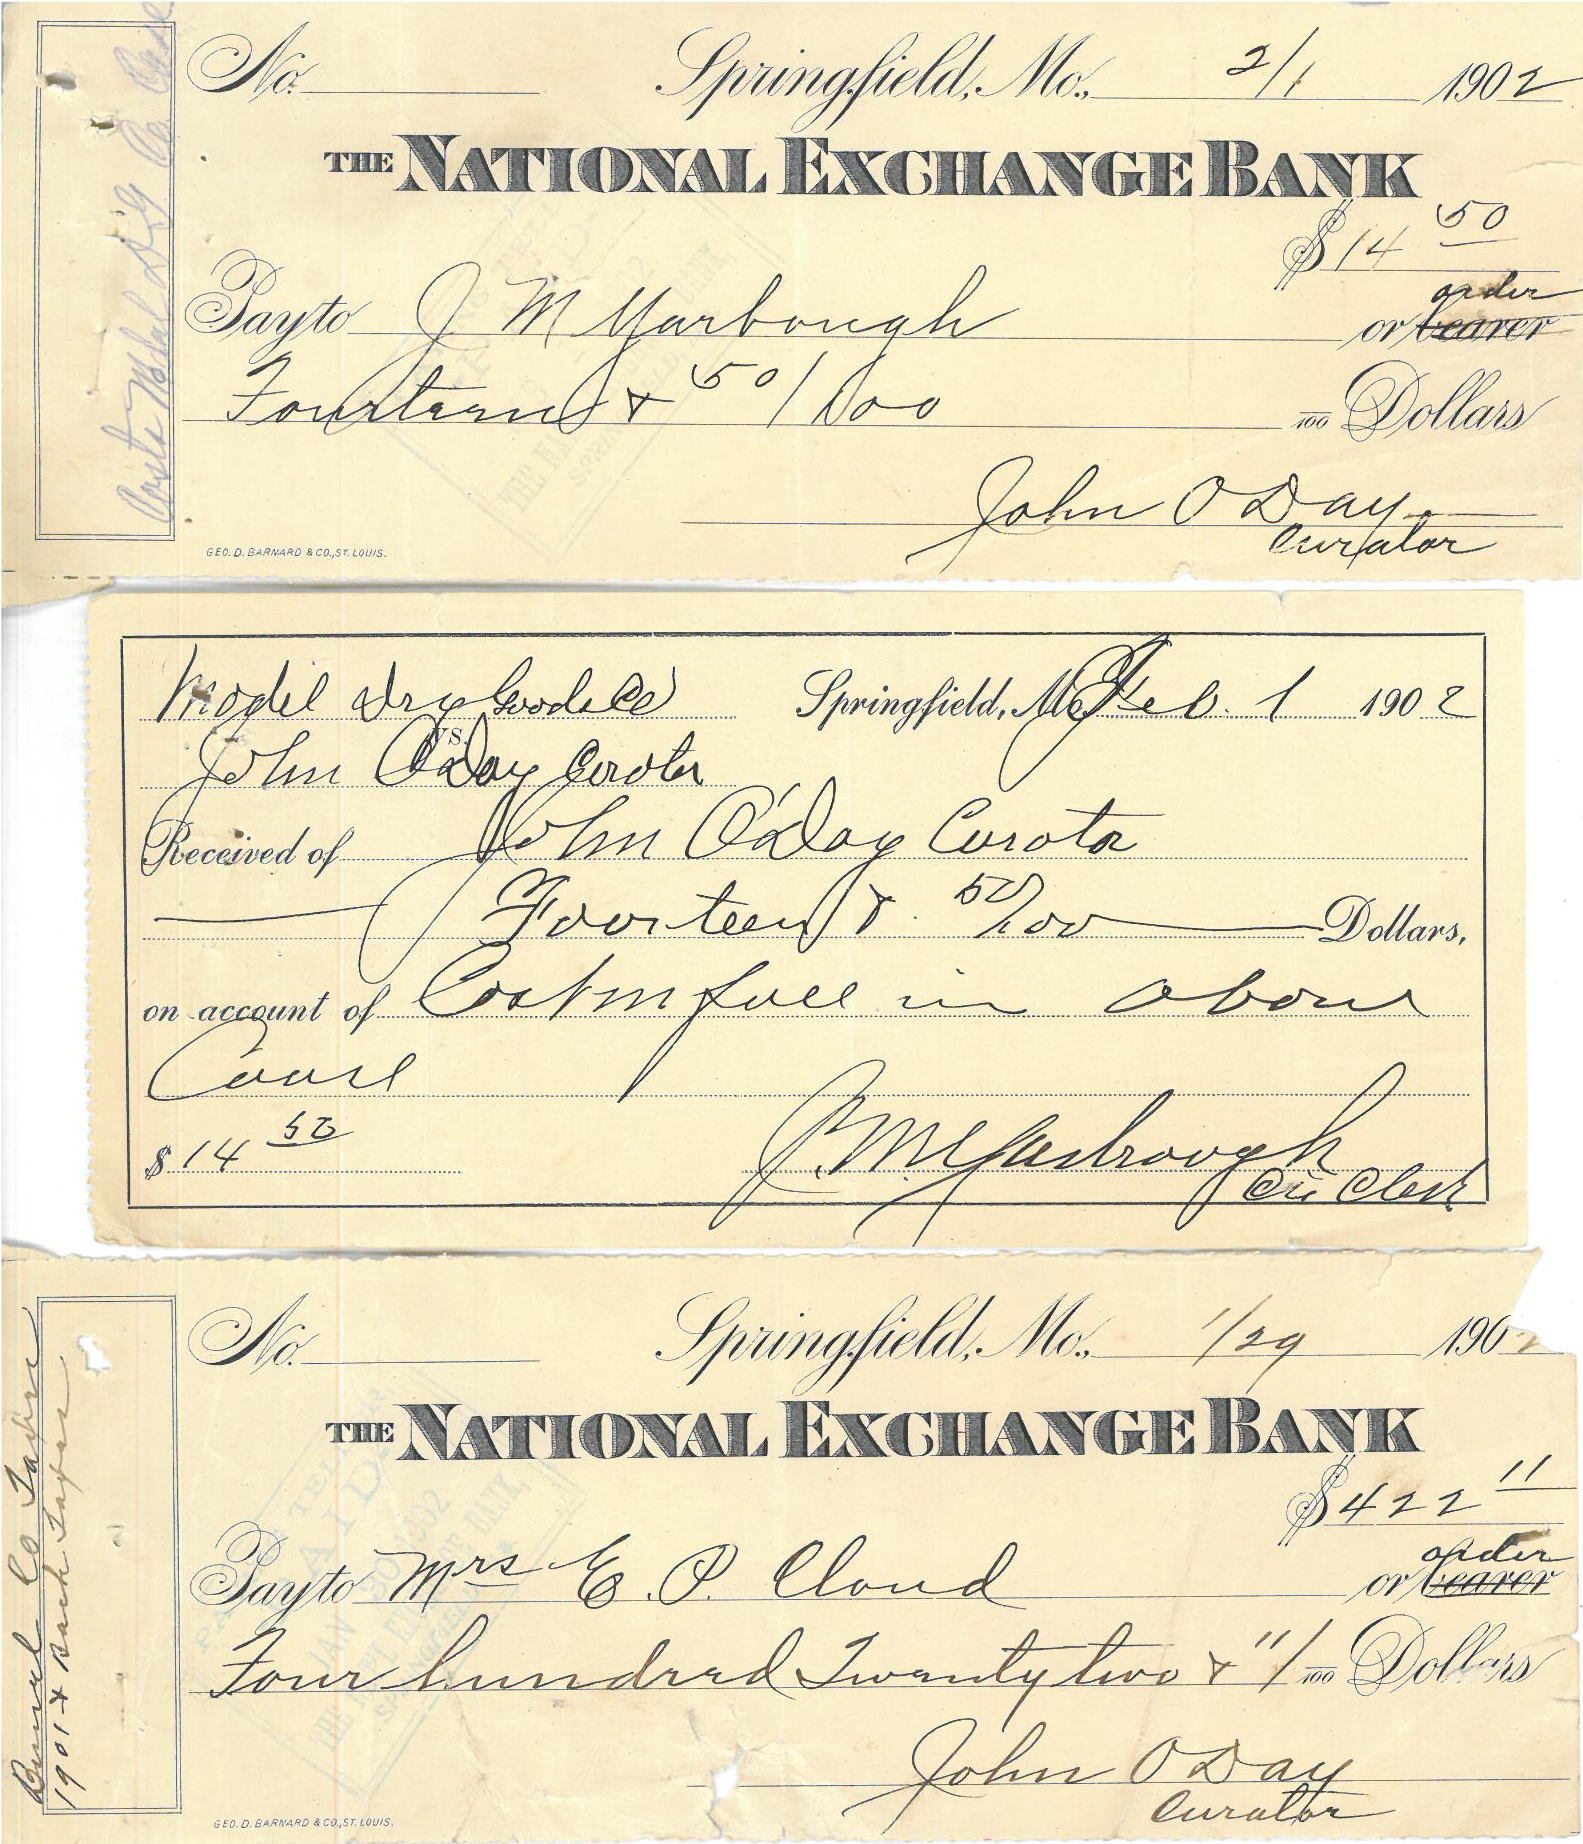 Costs Model D. G. Co Case
No. Springfield, Mo., 2/1 1902
THE NATIONAL EXCHANGE BANK
$14 50
Pay to J M Yarbough or bearer order
Fourteen & 50/100 100 Dollars
John O Day
Curator
GEO. D. BARNARD & CO., ST. LOUIS.
Model Dry Goods Co Springfield, Mo. Feb. 1 1902
vs.
John O'Day Curator
Received of John O'Day Curator
Fourteen & 50/100 Dollars,
on account of Cost in full in above
Cause
$14 50 J. M. Yarbrough
Cir Clerk
Burrel Co Taxes
1901 & Back Taxes
No. Springfield, Mo., 1/29 1902
THE NATIONAL EXCHANGE BANK
$422 11
Pay to Mrs E. P. Cloud or bearer order
Four hundred Twenty two & 11/100 Dollars
John O Day
Curator
GEO. D. BARNARD & CO., ST. LOUIS.